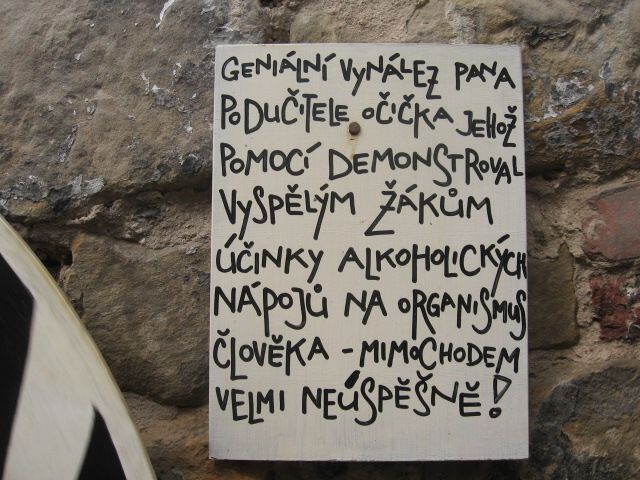 GENIÁLNÍ VYNÁLEZ PANA
PODUČITELE OČIČKA JEHOŽ
POMOCÍ DEMONSTROVAL
VYSPĚLÝM ŽÁKŮM
ÚČINKY ALKOHOLICKÝCH
NÁPOJŮ NA ORGANISMUS
ČLOVĚKA - MIMOCHODEM
VELMI NEÚSPĚŠNĚ!